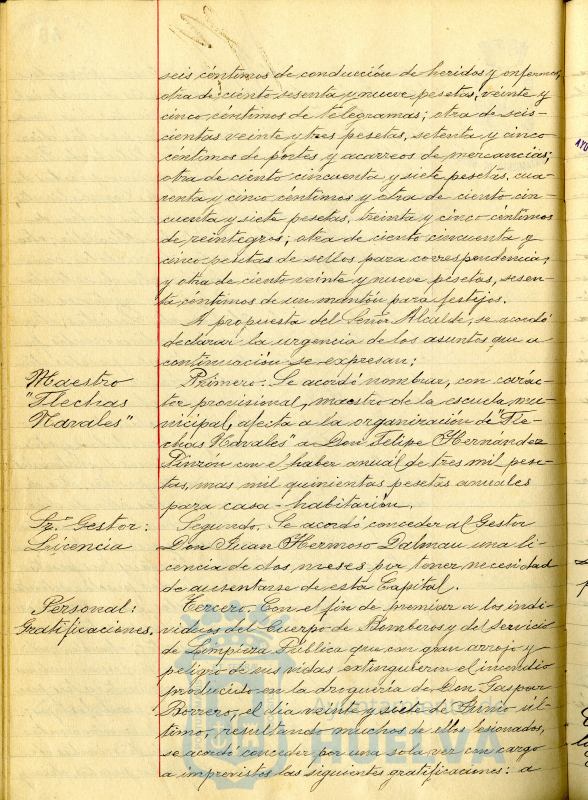 seis céntimos de conducción de heridos y enfermos,
otra de ciento sesenta y nueve pesetas, veinte y
cinco céntimos de telegramas; otra de seis-
cientas veinte y tres pesetas, setenta y cinco
céntimos de portes y acarreos de mercancías;
otra de ciento cincuenta y siete pesetas, cua-
renta y cinco céntimos y otra de ciento cin-
cuenta y siete pesetas, treinta y cinco céntimos
de reintegros; otra de ciento cincuenta y
cinco pesetas de sellos para correspondencia;
y otra de ciento veinte y nueve pesetas, sesen-
ta céntimos de un mantón para festejos.
A propuesta del Señor Alcalde, se acordó
declarar la urgencia de los asuntos que a
continuación se expresan:
Maestro
"Flechas
Navales"
Primero. Se acordó nombrar, con carác-
ter provisional, maestro de la escuela mu-
nicipal, afecta a la organización de "Fle-
chas Navales" a Don Felipe Hernández
Pinzón con el haber anual de tres mil pese-
tas, mas mil quinientas pesetas anuales
para casa-habitación.
Sr. Gestor:
Licencia
Segundo. Se acordó conceder al Gestor
Don Juan Hermoso Dalmau una li-
cencia de dos meses por tener necesidad
de ausentarse de esta Capital.
Personal:
Gratificaciones.
Tercero. Con el fin de premiar a los indi-
viduos del Cuerpo de Bomberos y del Servicio
de Limpieza Pública que con gran arrojo y
peligro de sus vidas extinguieron el incendio
producido en la droguería de Don Gaspar
Borrero, el día veinte y siete de Junio úl-
timo, resultando muchos de ellos lesionados,
se acordó conceder por una sola vez con cargo
a imprevistos las siguientes gratificaciones: a
HUELVA